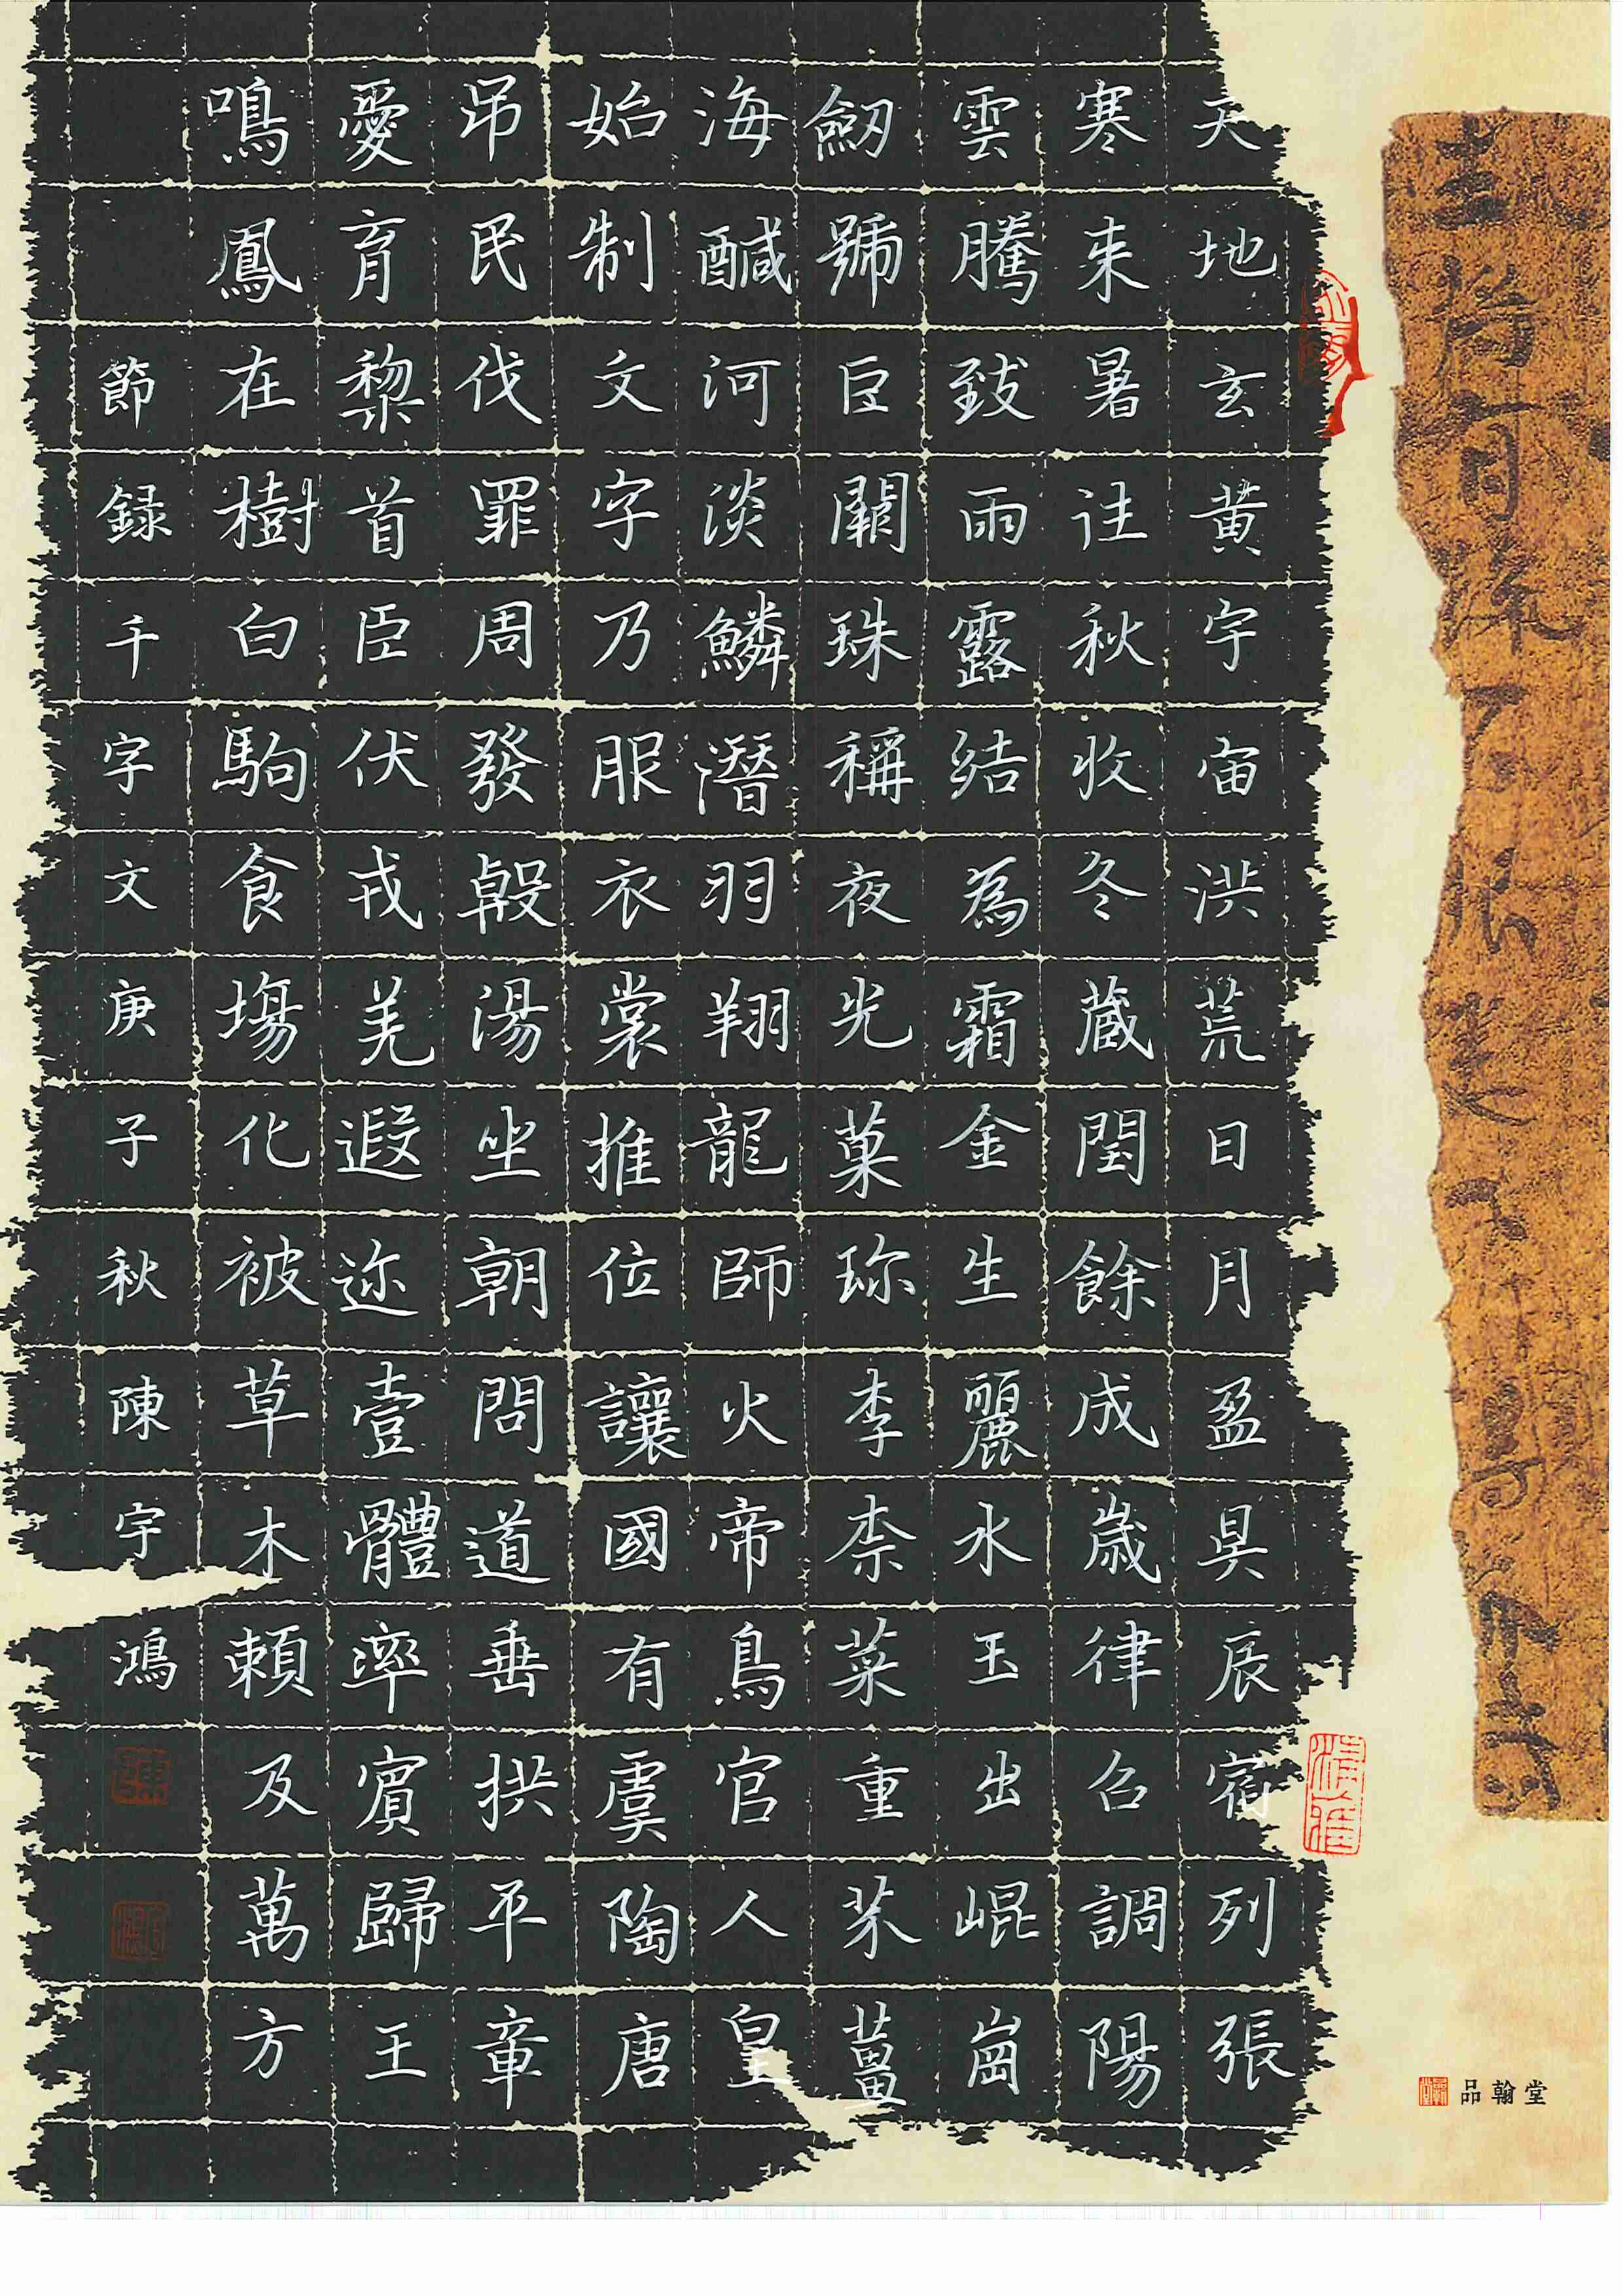 天地玄黃宇宙洪荒日月盈昃辰宿列張
寒来暑往秋收冬藏閏餘成歲律召調陽
雲騰致雨露結為霜金生麗水玉出崐崗
劒號巨闕珠稱夜光菓珎李柰菜重芥薑
海醎河淡鱗潛羽翔龍師火帝鳥官人皇
始制文字乃服衣裳推位讓國有虞陶唐
吊民伐罪周發殷湯坐朝問道垂拱平章
愛育黎首臣伏戎羌遐迩壹體率賓歸王
鳴鳳在樹白駒食場化被草木賴及萬方
節録千字文庚子秋陳宇鴻
品翰堂